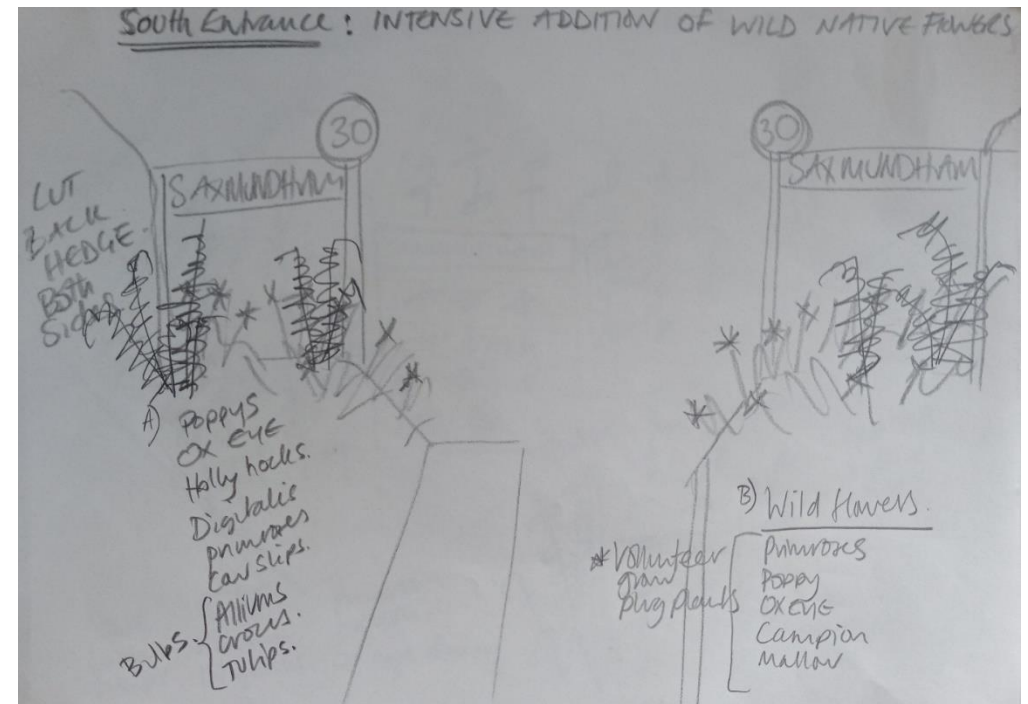 South Entrance : INTENSIVE ADDITION OF WILD NATIVE FLOWERS
30
SAXMUNDHAM
30
SAXMUNDHAM
CUT
BACK
HEDGE.
Both
Sides
A) POPPYS
OX EYE
Hollyhocks.
Digitalis
primroses
Cowslips.
Bulbs.
Alliums
Crocus.
Tulips.
B) Wild flowers.
* Volunteer
grow
plug plants
Primroses
POPPY
OXEYE
Campion
Mallow